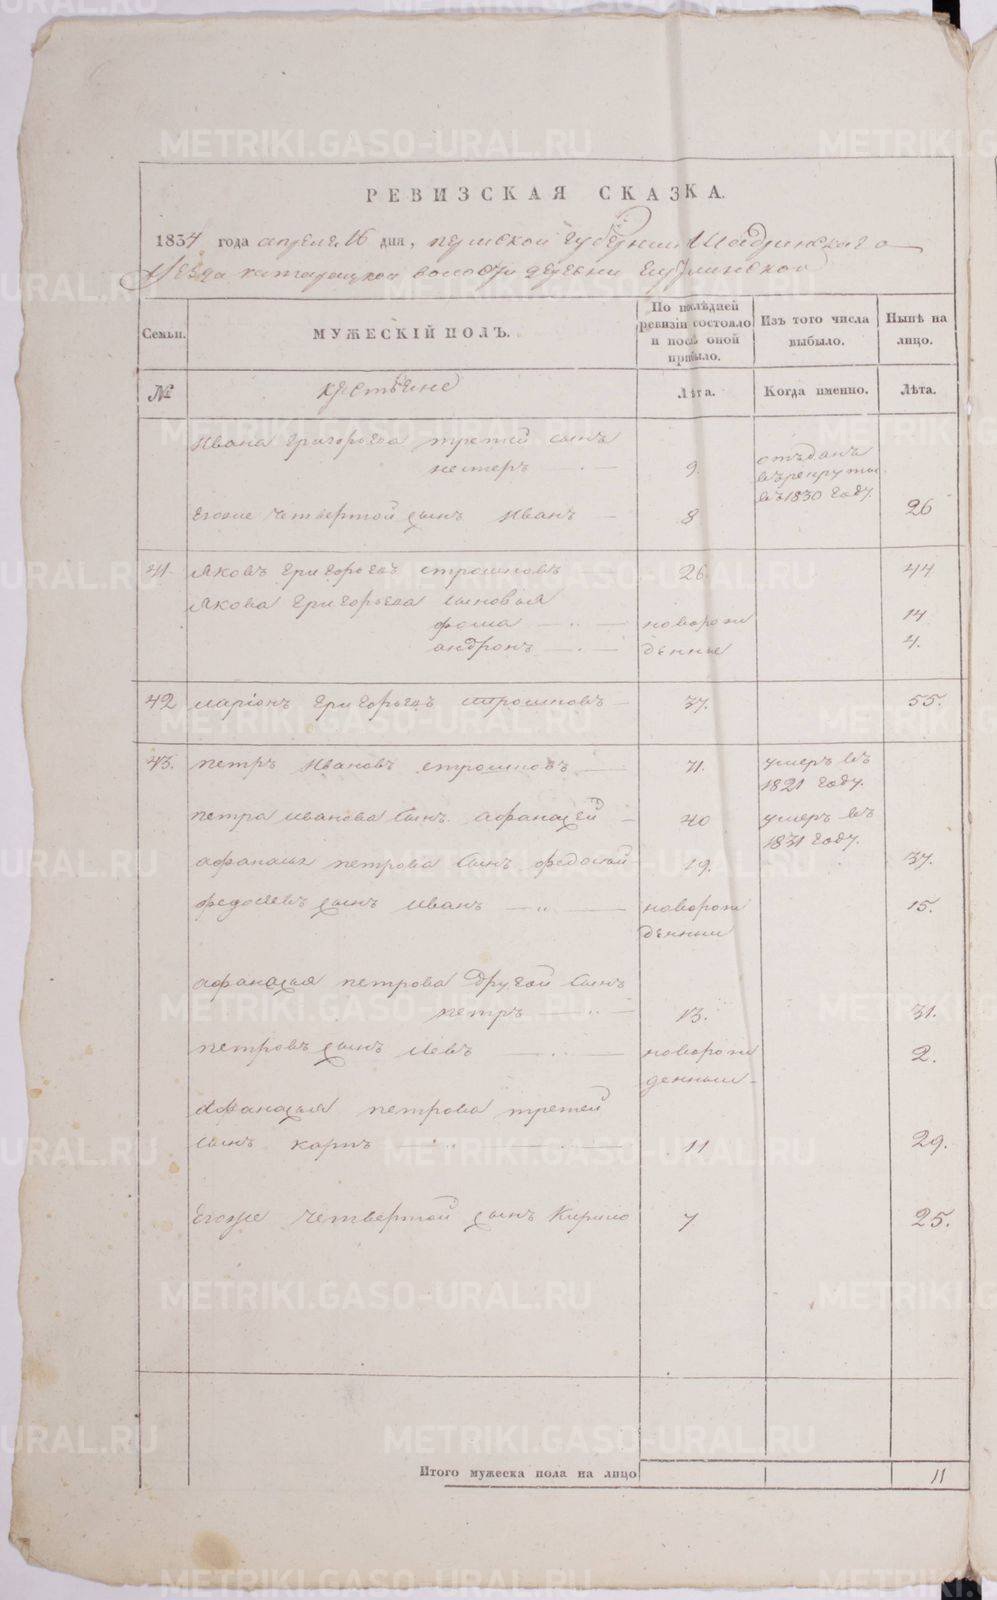 РЕВИЗСКАЯ СКАЗКА.
1834 года апреля 16 дня, пермской губернии Шадринскаго
Уезда катарацкой волости деревни
Семьи. МУЖЕСКІЙ ПОЛЪ. По послѣдней ревизіи состояло и послѣ оной прибыло. Изъ того числа выбыло. Нынѣ на лицо.
№ крестьяне Лѣта. Когда именно. Лѣта.
Ивана Григорьева третей сынъ
нестеръ 9. отъданъ въ рекруты въ 1830 году.
Егоже четвертой сынъ Иванъ 8 26
41 Яковъ Григорьевъ строшковъ 26. 44
Якова Григорьева сыновья
фома новорож 14
андронъ денные 4.
42 ларіонъ Григорьевъ строшковъ 37. 55.
43. петръ Ивановъ строшковъ 71. умеръ въ 1821 году.
петра иванова сынъ афанасей 40 умеръ въ 1831 году.
афанасья петрова сынъ федосей 19. 37.
федосеевъ сынъ иванъ новорож 15.
денный
афанасья петрова другой сынъ
петръ 13. 31.
петровъ сынъ левъ новорож 2.
денный
Афанасья петрова третей
сынъ карпъ 11 29.
Егоже четвертой сынъ Кирило 7 25.
Итого мужеска пола на лицо 11
METRIKI.GASO-URAL.RU